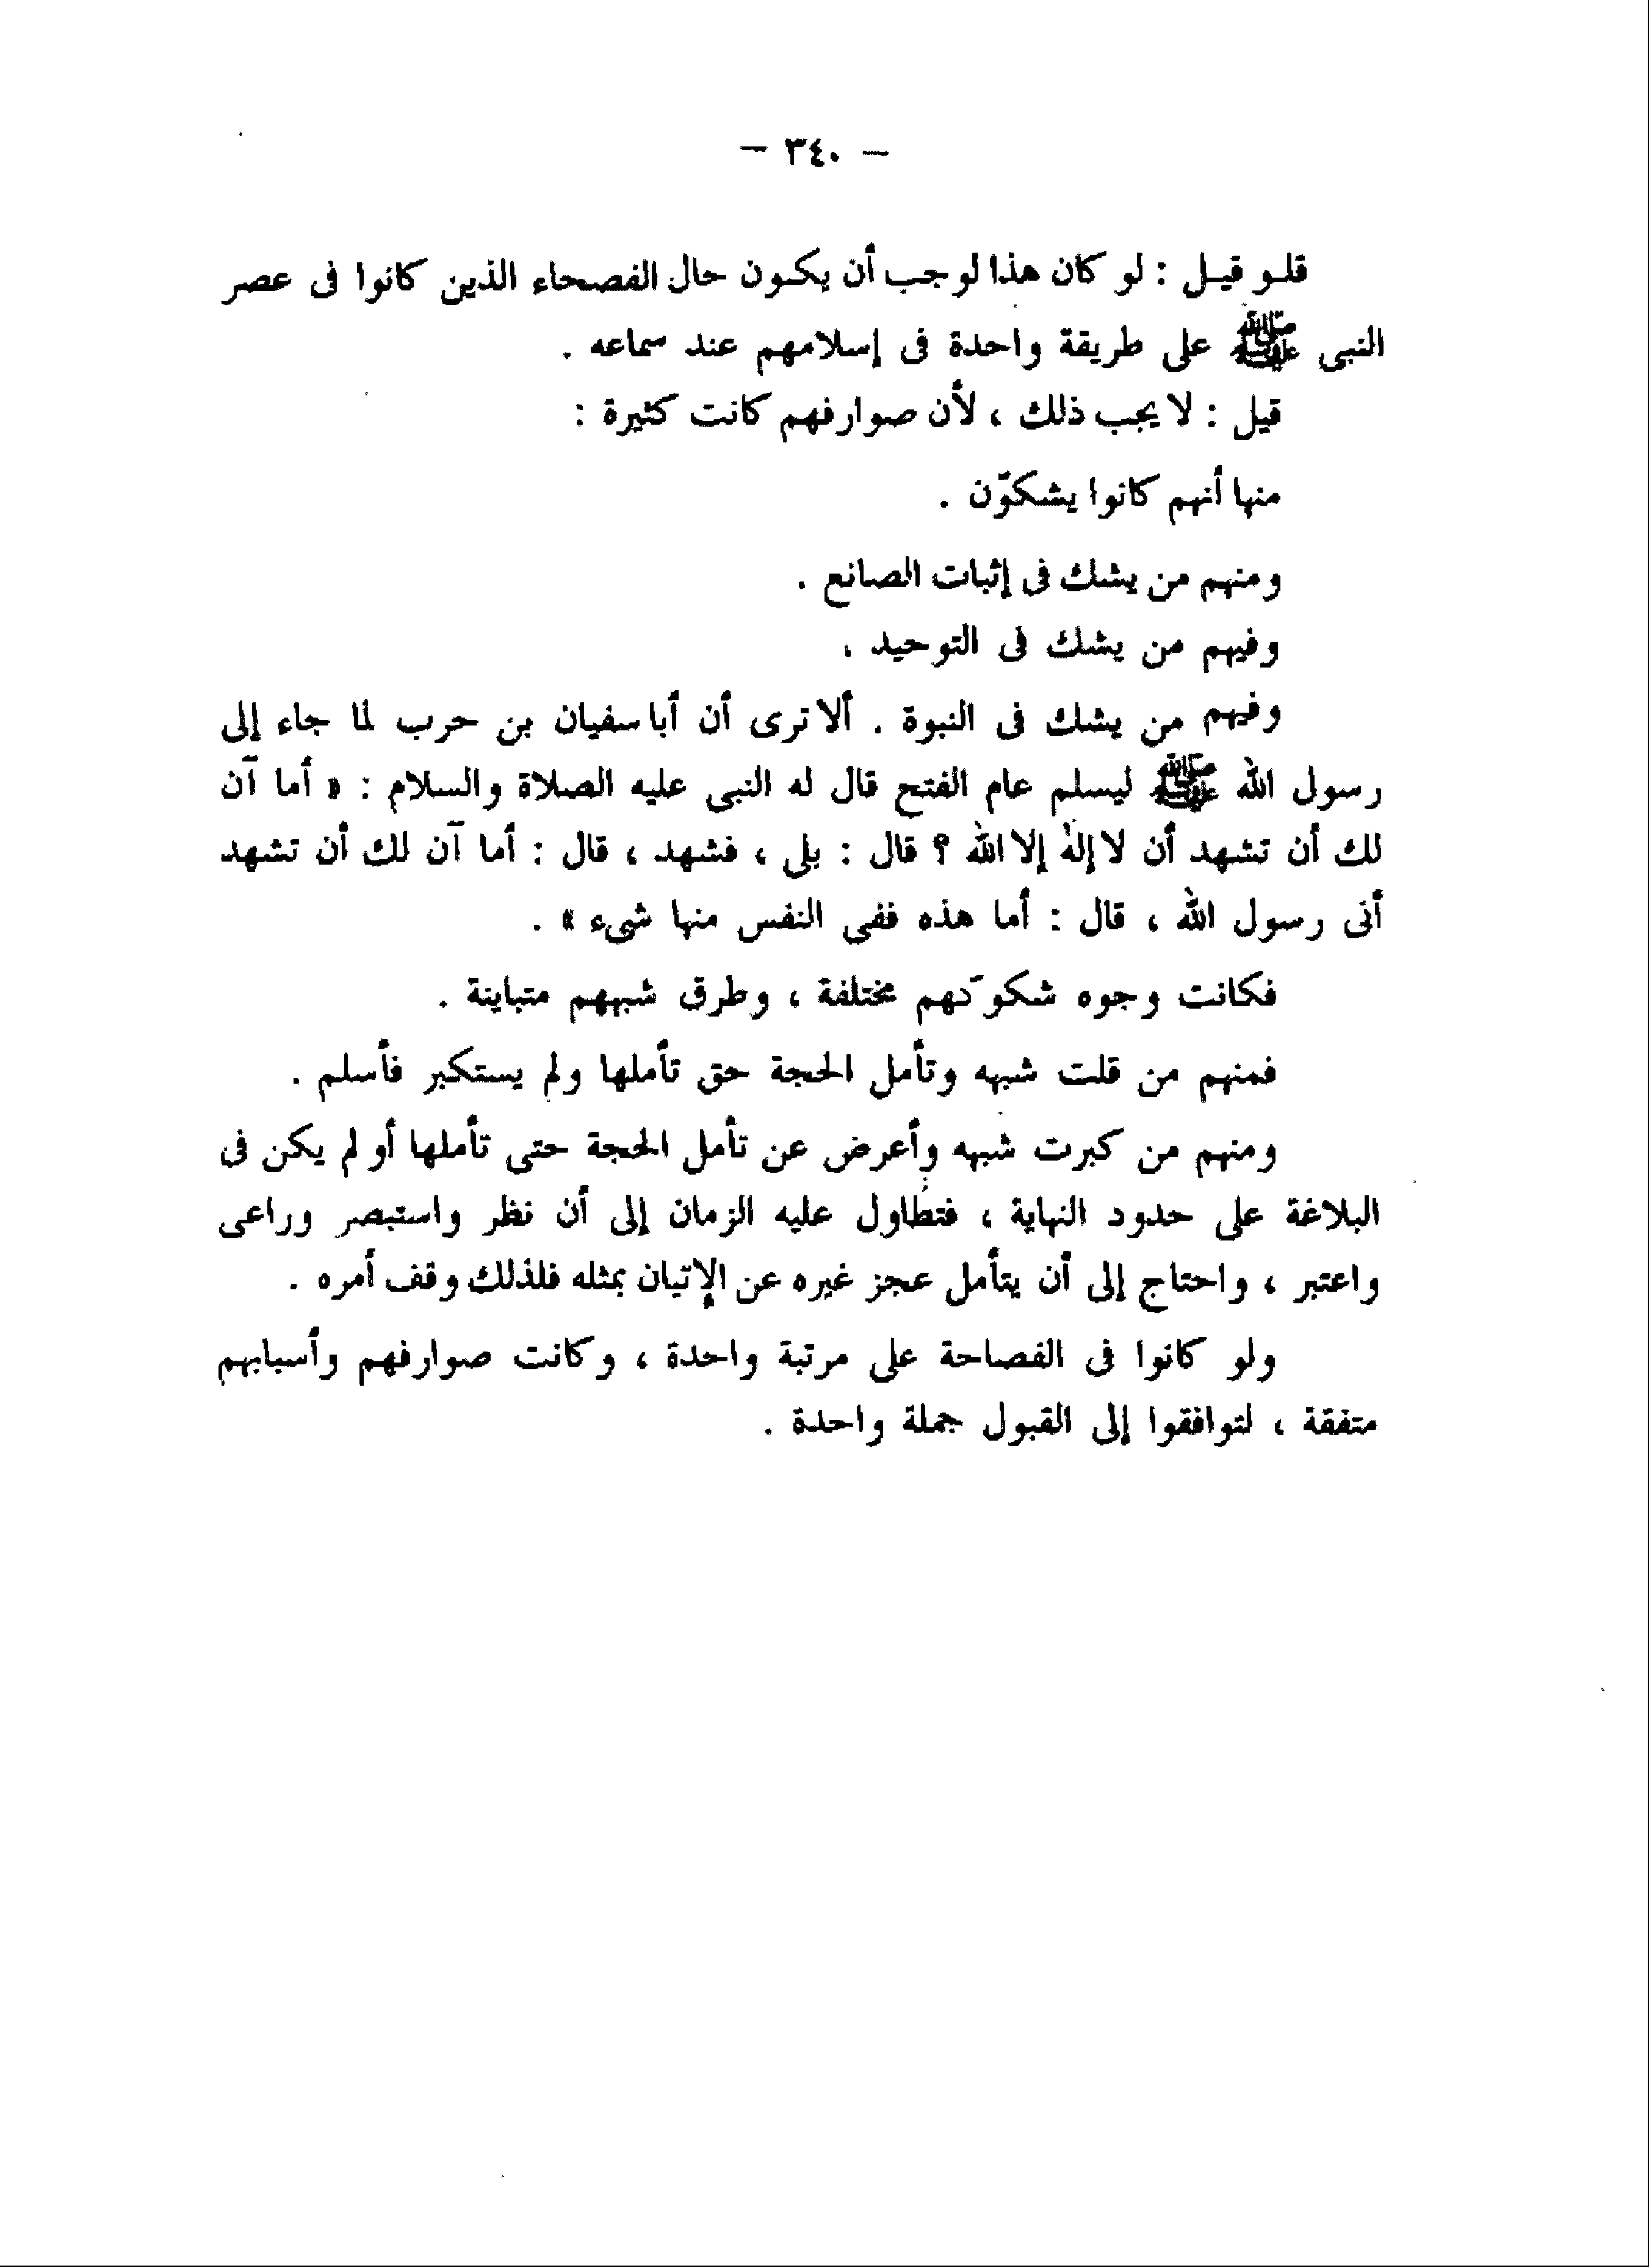 — ٣٤٠ —
قلو قيل : لو كان هذا لوجب أن يكون حال الفصحاء الذين كانوا فى عصر
النبى ﷺ على طريقة واحدة فى إسلامهم عند سماعه .
قيل : لا يجب ذلك ، لأن صوارفهم كانت كثيرة :
منها أنهم كانوا يشكوّن .
ومنهم من يشك فى إثبات الصانع .
وفيهم من يشك فى التوحيد .
وفيهم من يشك فى النبوة . ألا ترى أن أبا سفيان بن حرب لما جاء إلى
رسول الله ﷺ ليسلم عام الفتح قال له النبى عليه الصلاة والسلام : « أما آن
لك أن تشهد أن لا إله إلا الله ؟ قال : بلى ، فشهد ، قال : أما آن لك أن تشهد
أنى رسول الله ، قال : أما هذه ففى النفس منها شىء » .
فكانت وجوه شكوكهم مختلفة ، وطرق شبههم متباينة .
فمنهم من قلت شبهه وتأمل الحجة حق تأملها ولم يستكبر فأسلم .
ومنهم من كبرت شبهه وأعرض عن تأمل الحجة حتى تأملها أو لم يكن فى
البلاغة على حدود النهاية ، فتطاول عليه الزمان إلى أن نظر واستبصر وراعى
واعتبر ، واحتاج إلى أن يتأمل عجز غيره عن الإتيان بمثله فلذلك وقف أمره .
ولو كانوا فى الفصاحة على مرتبة واحدة ، وكانت صوارفهم وأسبابهم
متفقة ، لتوافقوا إلى القبول جملة واحدة .